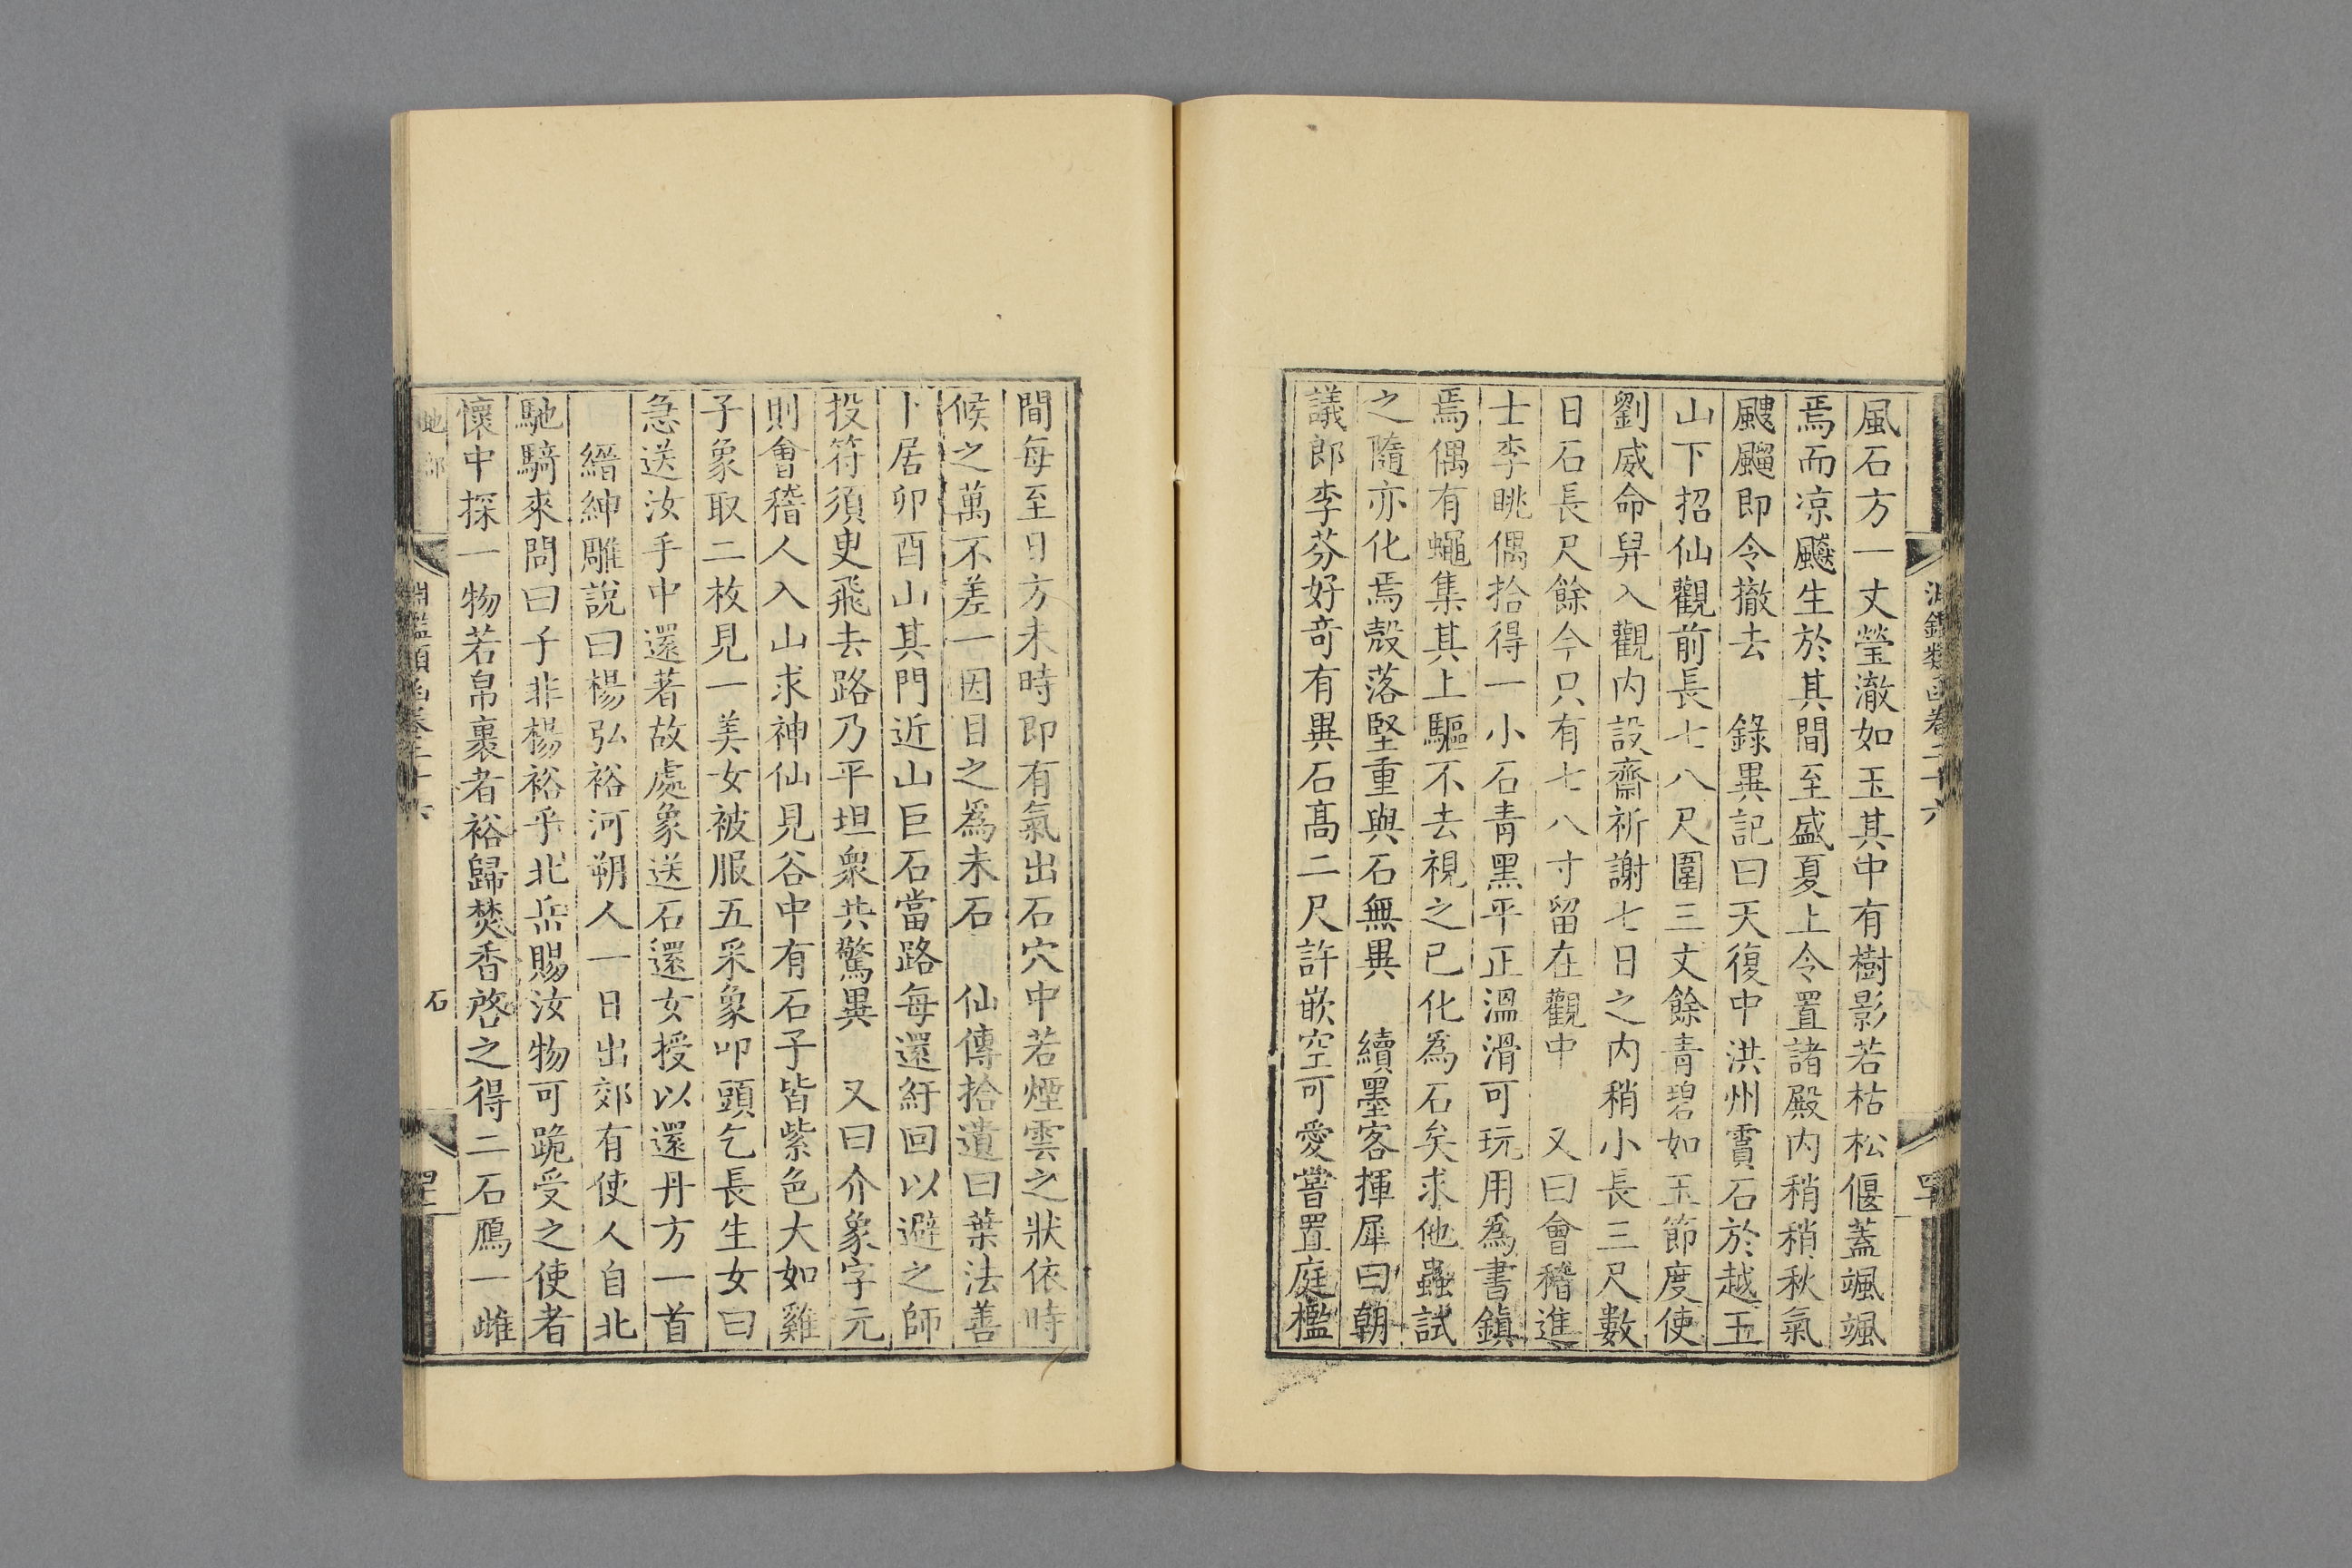 風石方一丈瑩澈如玉其中有樹影若枯松偃蓋颯颯
焉而凉飈生於其間至盛夏上令置諸殿内稍稍秋氣
颼飀即令撤去　錄異記曰天復中洪州霣石於越王
山下招仙觀前長七八尺圍三丈餘青碧如玉節度使
劉威命舁入觀内設齋祈謝七日之内稍小長三尺數
日石長尺餘今只有七八寸留在觀中　又曰會稽進
士李眺偶拾得一小石青黑平正溫滑可玩用爲書鎮
焉偶有蠅集其上驅不去視之已化爲石矣求他蟲試
之隨亦化焉殼落堅重與石無異　續墨客揮犀曰朝
議郎李芬好奇有異石高二尺許嵌空可愛嘗置庭檻
間每至日方未時即有氣出石穴中若煙雲之狀依時
候之萬不差一因目之爲未石　仙傳拾遺曰葉法善
卜居卯酉山其門近山巨石當路每還紆回以避之師
投符須臾飛去路乃平坦衆共驚異　又曰介象字元
則會稽人入山求神仙見谷中有石子皆紫色大如雞
子象取二枚見一美女被服五采象叩頭乞長生女曰
急送汝手中還著故處象送石還女授以還丹方一首
縉紳雕說曰楊弘裕河朔人一日出郊有使人自北
馳騎來問曰子非楊裕乎北岳賜汝物可跪受之使者
懷中探一物若帛裹者裕歸焚香啓之得二石鴈一雌
地部
淵鑑類函卷二十六
石